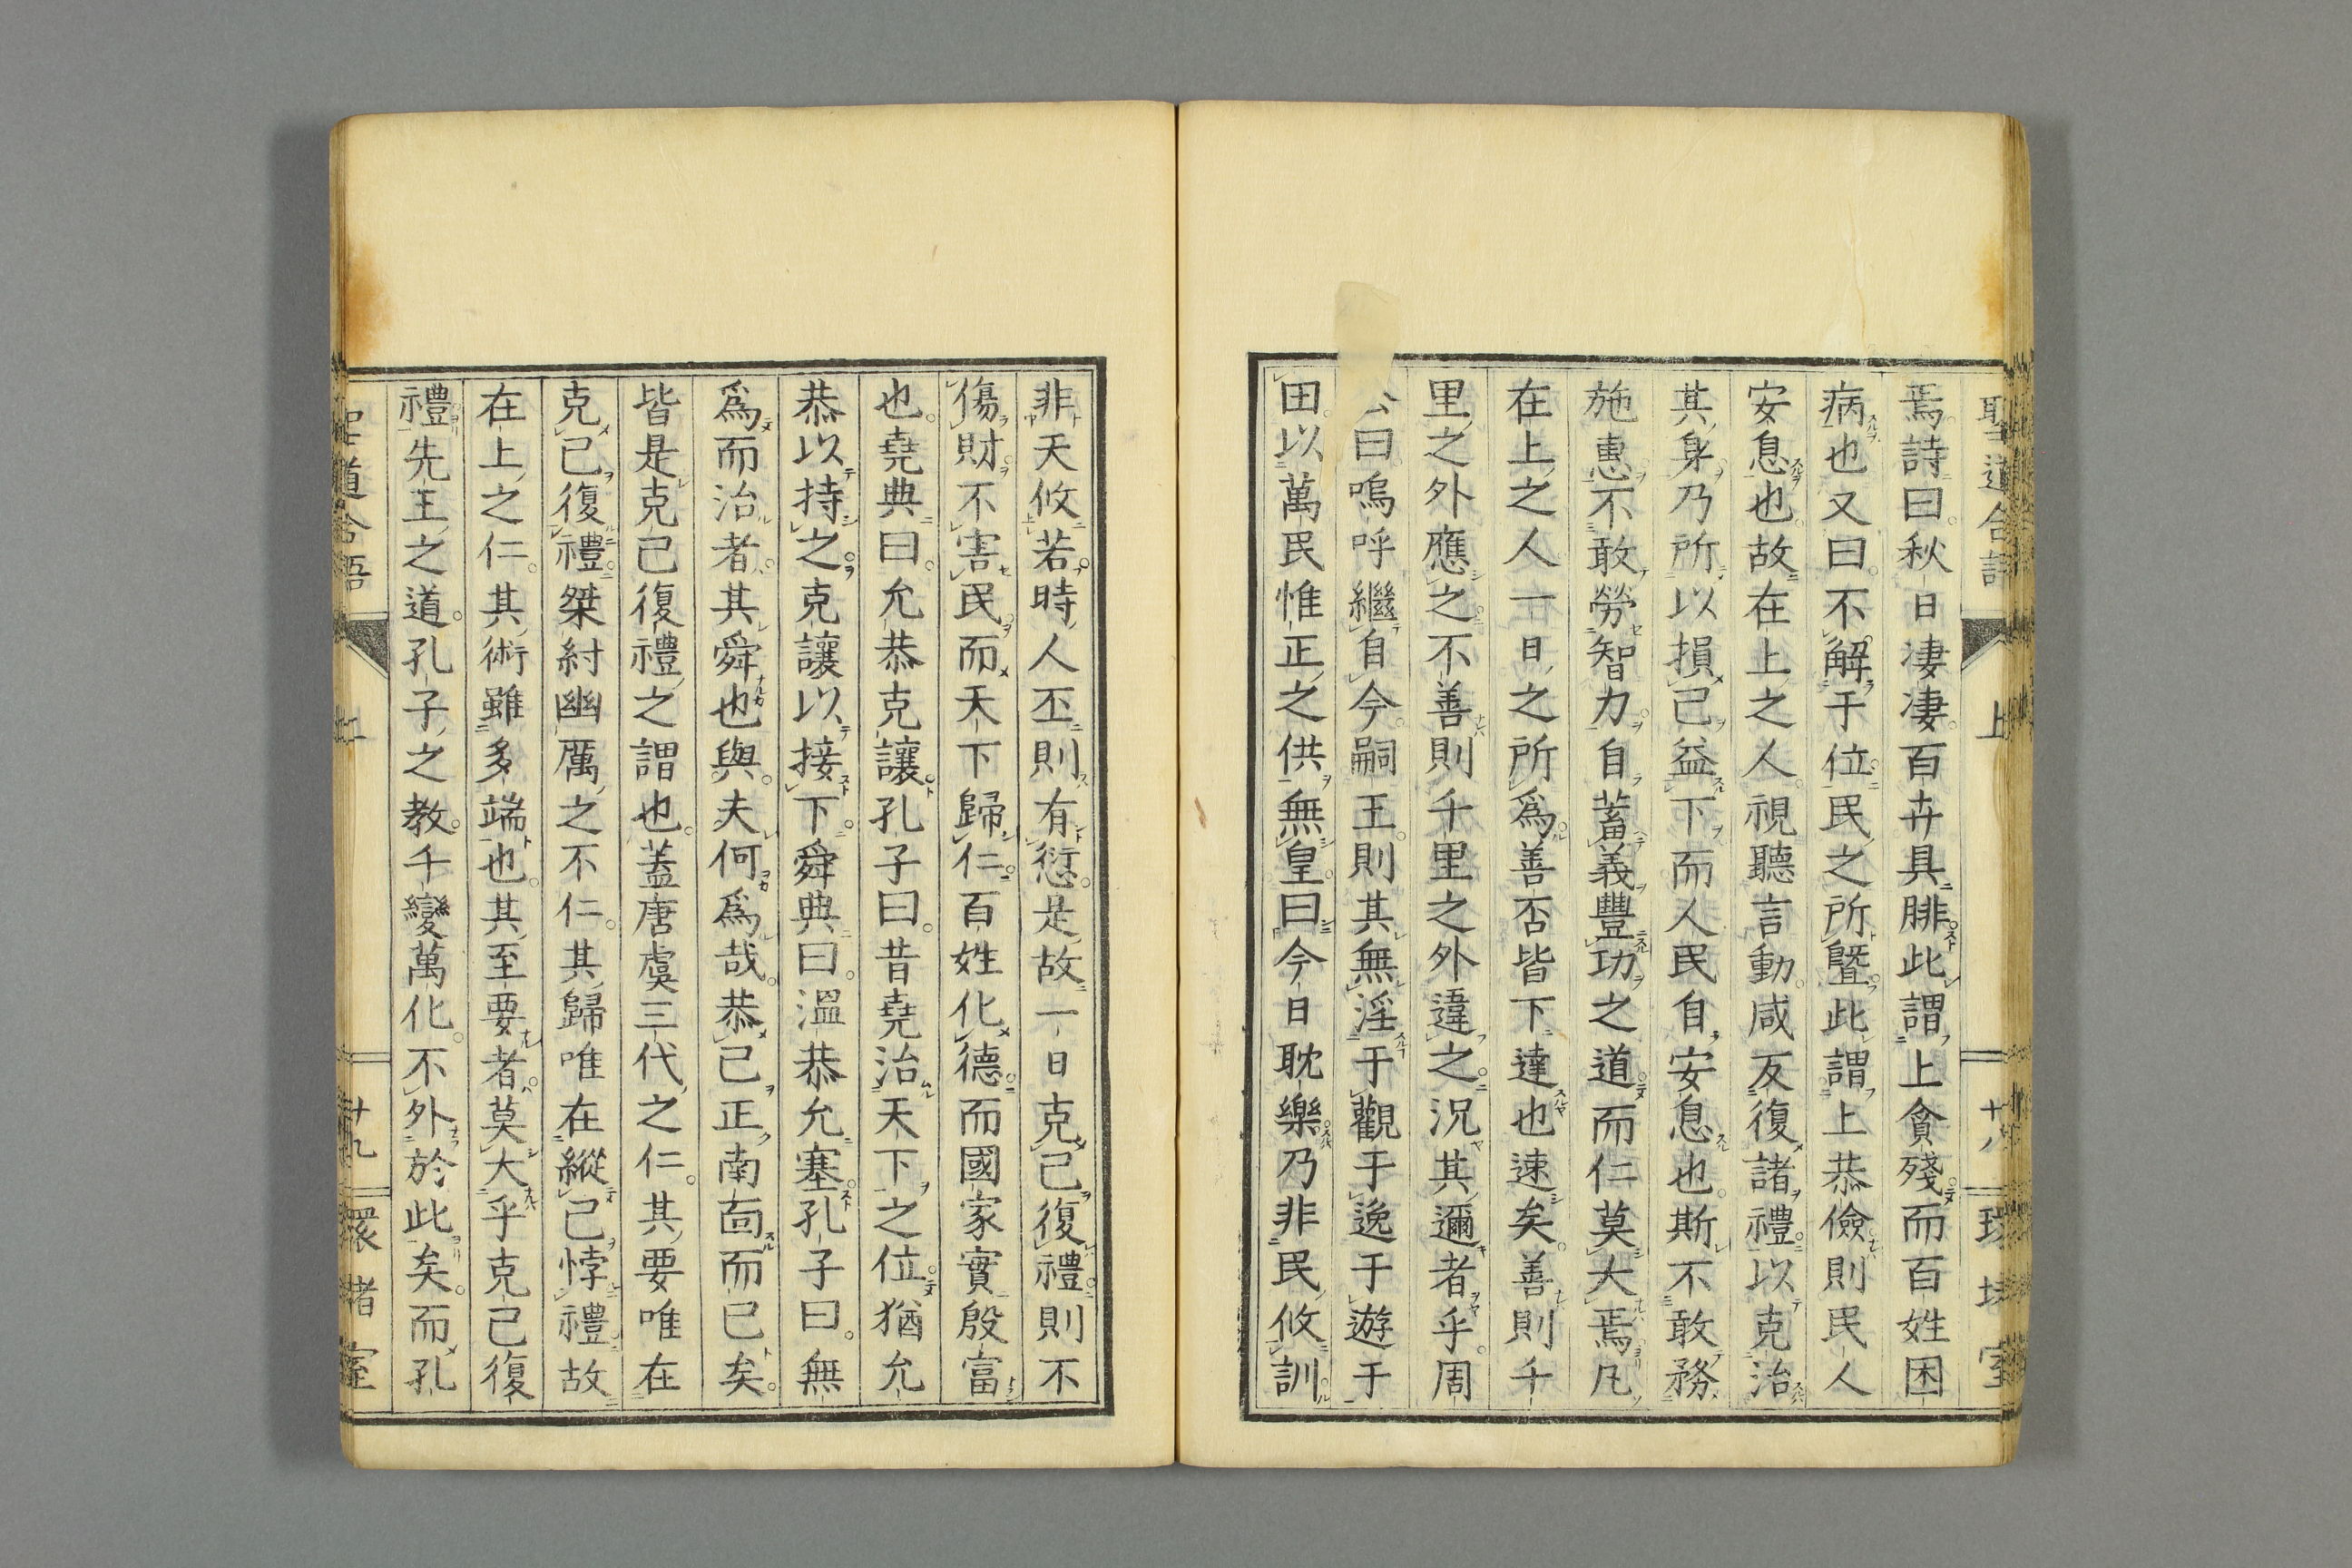 焉詩曰秋日凄凄百卉具腓此謂上貪殘而百姓困
病也又曰不解于位民之所曁此謂上恭儉則民人
安息也故在上之人視聽言動咸反復諸禮以克治
其身乃所以損己益下而人民自安息也斯不敢務
施惠不敢勞智力自蓄義豐功之道而仁莫大焉凡
在上之人一日之所爲善否皆下達也速矣善則千
里之外應之不善則千里之外違之況其邇者乎周
公曰嗚呼繼自今嗣王則其無淫于觀于逸于遊于
田以萬民惟正之供無皇曰今日耽樂乃非民攸訓
非天攸若時人丕則有愆是故一日克己復禮則不
傷財不害民而天下歸仁百姓化德而國家實殷富
也堯典曰允恭克讓孔子曰昔堯治天下之位猶允
恭以持之克讓以接下舜典曰溫恭允塞孔子曰無
爲而治者其舜也與夫何爲哉恭己正南面而已矣
皆是克己復禮之謂也蓋唐虞三代之仁其要唯在
克己復禮桀紂幽厲之不仁其歸唯在縱己悖禮故
在上之仁其術雖多端也其至要者莫大乎克己復
禮先王之道孔子之教千變萬化不外於此矣而孔
聖道合語
上
十九
環堵室